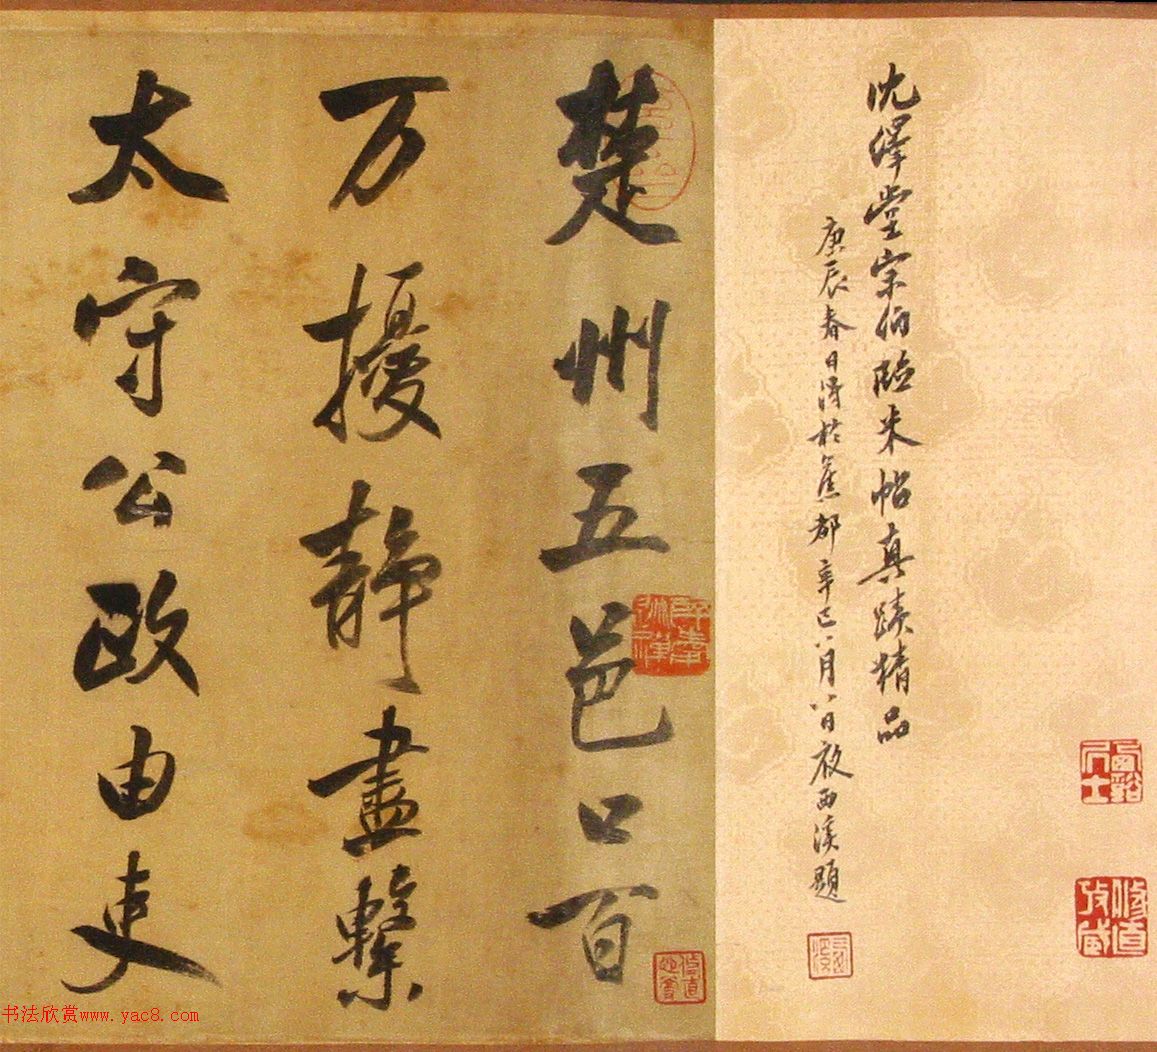 沈绎堂宗伯临米帖真蹟精品
庚辰春日得於蕉都辛巳八月八日夜西溪题
楚州五邑口百
万擾静盡繫
太守公政由吏
西谿居士
书法欣赏www.yac8.com